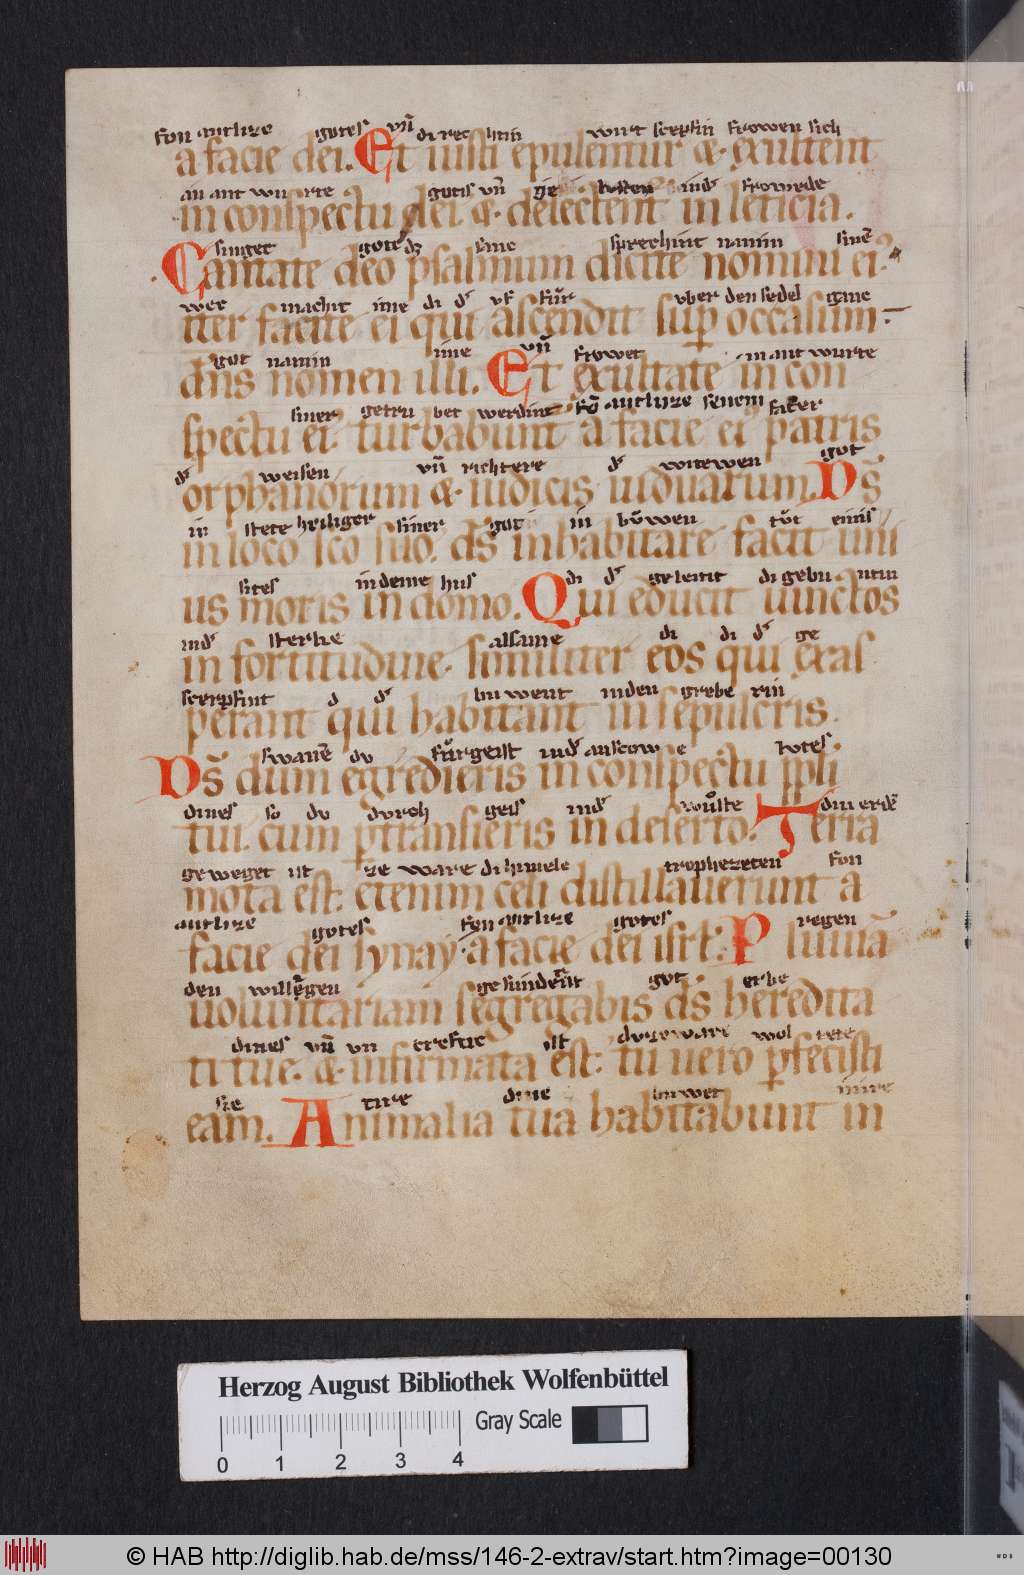 fon antlize gotes vn̄ di rec htin wirt scepfin frowen sich
a facie dei. Et iusti epulentur & exultent
an ant wurte gotis vn̄ ge in d' frowede
in conspectu dei & delectent in leticia.
singet gote dz sine sprechint namin sinē
Cantate deo psalmum dicite nomini ei'
wec machit ime di d' vf fůr vber den sedel gine
iter facite ei qui ascendit sup occasum
got namin ime vn̄ frowet in ant wurte
dn̄s nomen illi. Et exultate in con
siner getru bet werdint fō antlize senem fater
spectu ei' turbabunt a facie ei' patris
d' weisen vn̄ richtere d' witewen got
orphanorum & iudicis uiduarum. Ds̄
in stete heiliger siner got in būwen tůt einis
in loco sc̄o suo. ds̄ inhabitare facit uni
sites in deme hus di d' geleitit di gebu
us moris in domo. Qui educit uinctos
in d' sterke alsame di di d' ge
in fortitudine. similiter eos qui exas
scerpfint d d' buwent in den grebe rin
perant qui habitant in sepulcris.
swanē du fůrgeist in d' anscow e
Ds̄ dum egredieris in conspectu ppli
dines so du durch geis in d' wůste diu erdē
tui. cum ptransieris in deserto. Terra
geweget ist ze ware di himele trophezeten fon
mota est: etenim celi distillauerunt a
antlize gotes fon antlize gotes regen
facie dei synay. a facie dei isrł. Pluuiā
den willegen gesundent got erbe
uoluntariam segregabis ds̄ heredita
dines vn̄ vn creftic ist du zeware
ti tue. & infirmata est: tu uero pfecisti
sie tire dine buwet
eam. Animalia tua habitabunt in
Herzog August Bibliothek Wolfenbüttel
Gray Scale
0 1 2 3 4
© HAB http://diglib.hab.de/mss/146-2-extrav/start.htm?image=00130